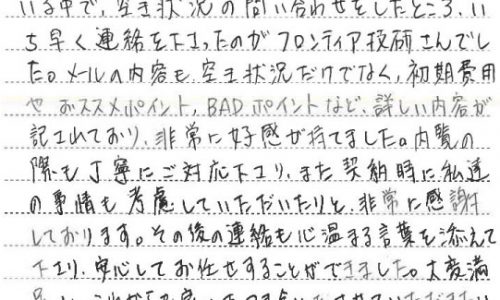 いる中で、空き状況の問い合わせをしたところ、い
ち早く連絡を下さったのがフロンティア技研さんでし
た。メールの内容も、空き状況だけでなく、初期費用
や おススメポイント、BADポイントなど、詳しい内容が
記されており、非常に好感が持てました。内覧の
際も丁寧にご対応下さり、また契約時に私達
の事情も考慮していただいたりと、非常に感謝
しております。その後の連絡も心温まる言葉を添えて
下さり、安心してお任せすることができました。大変満